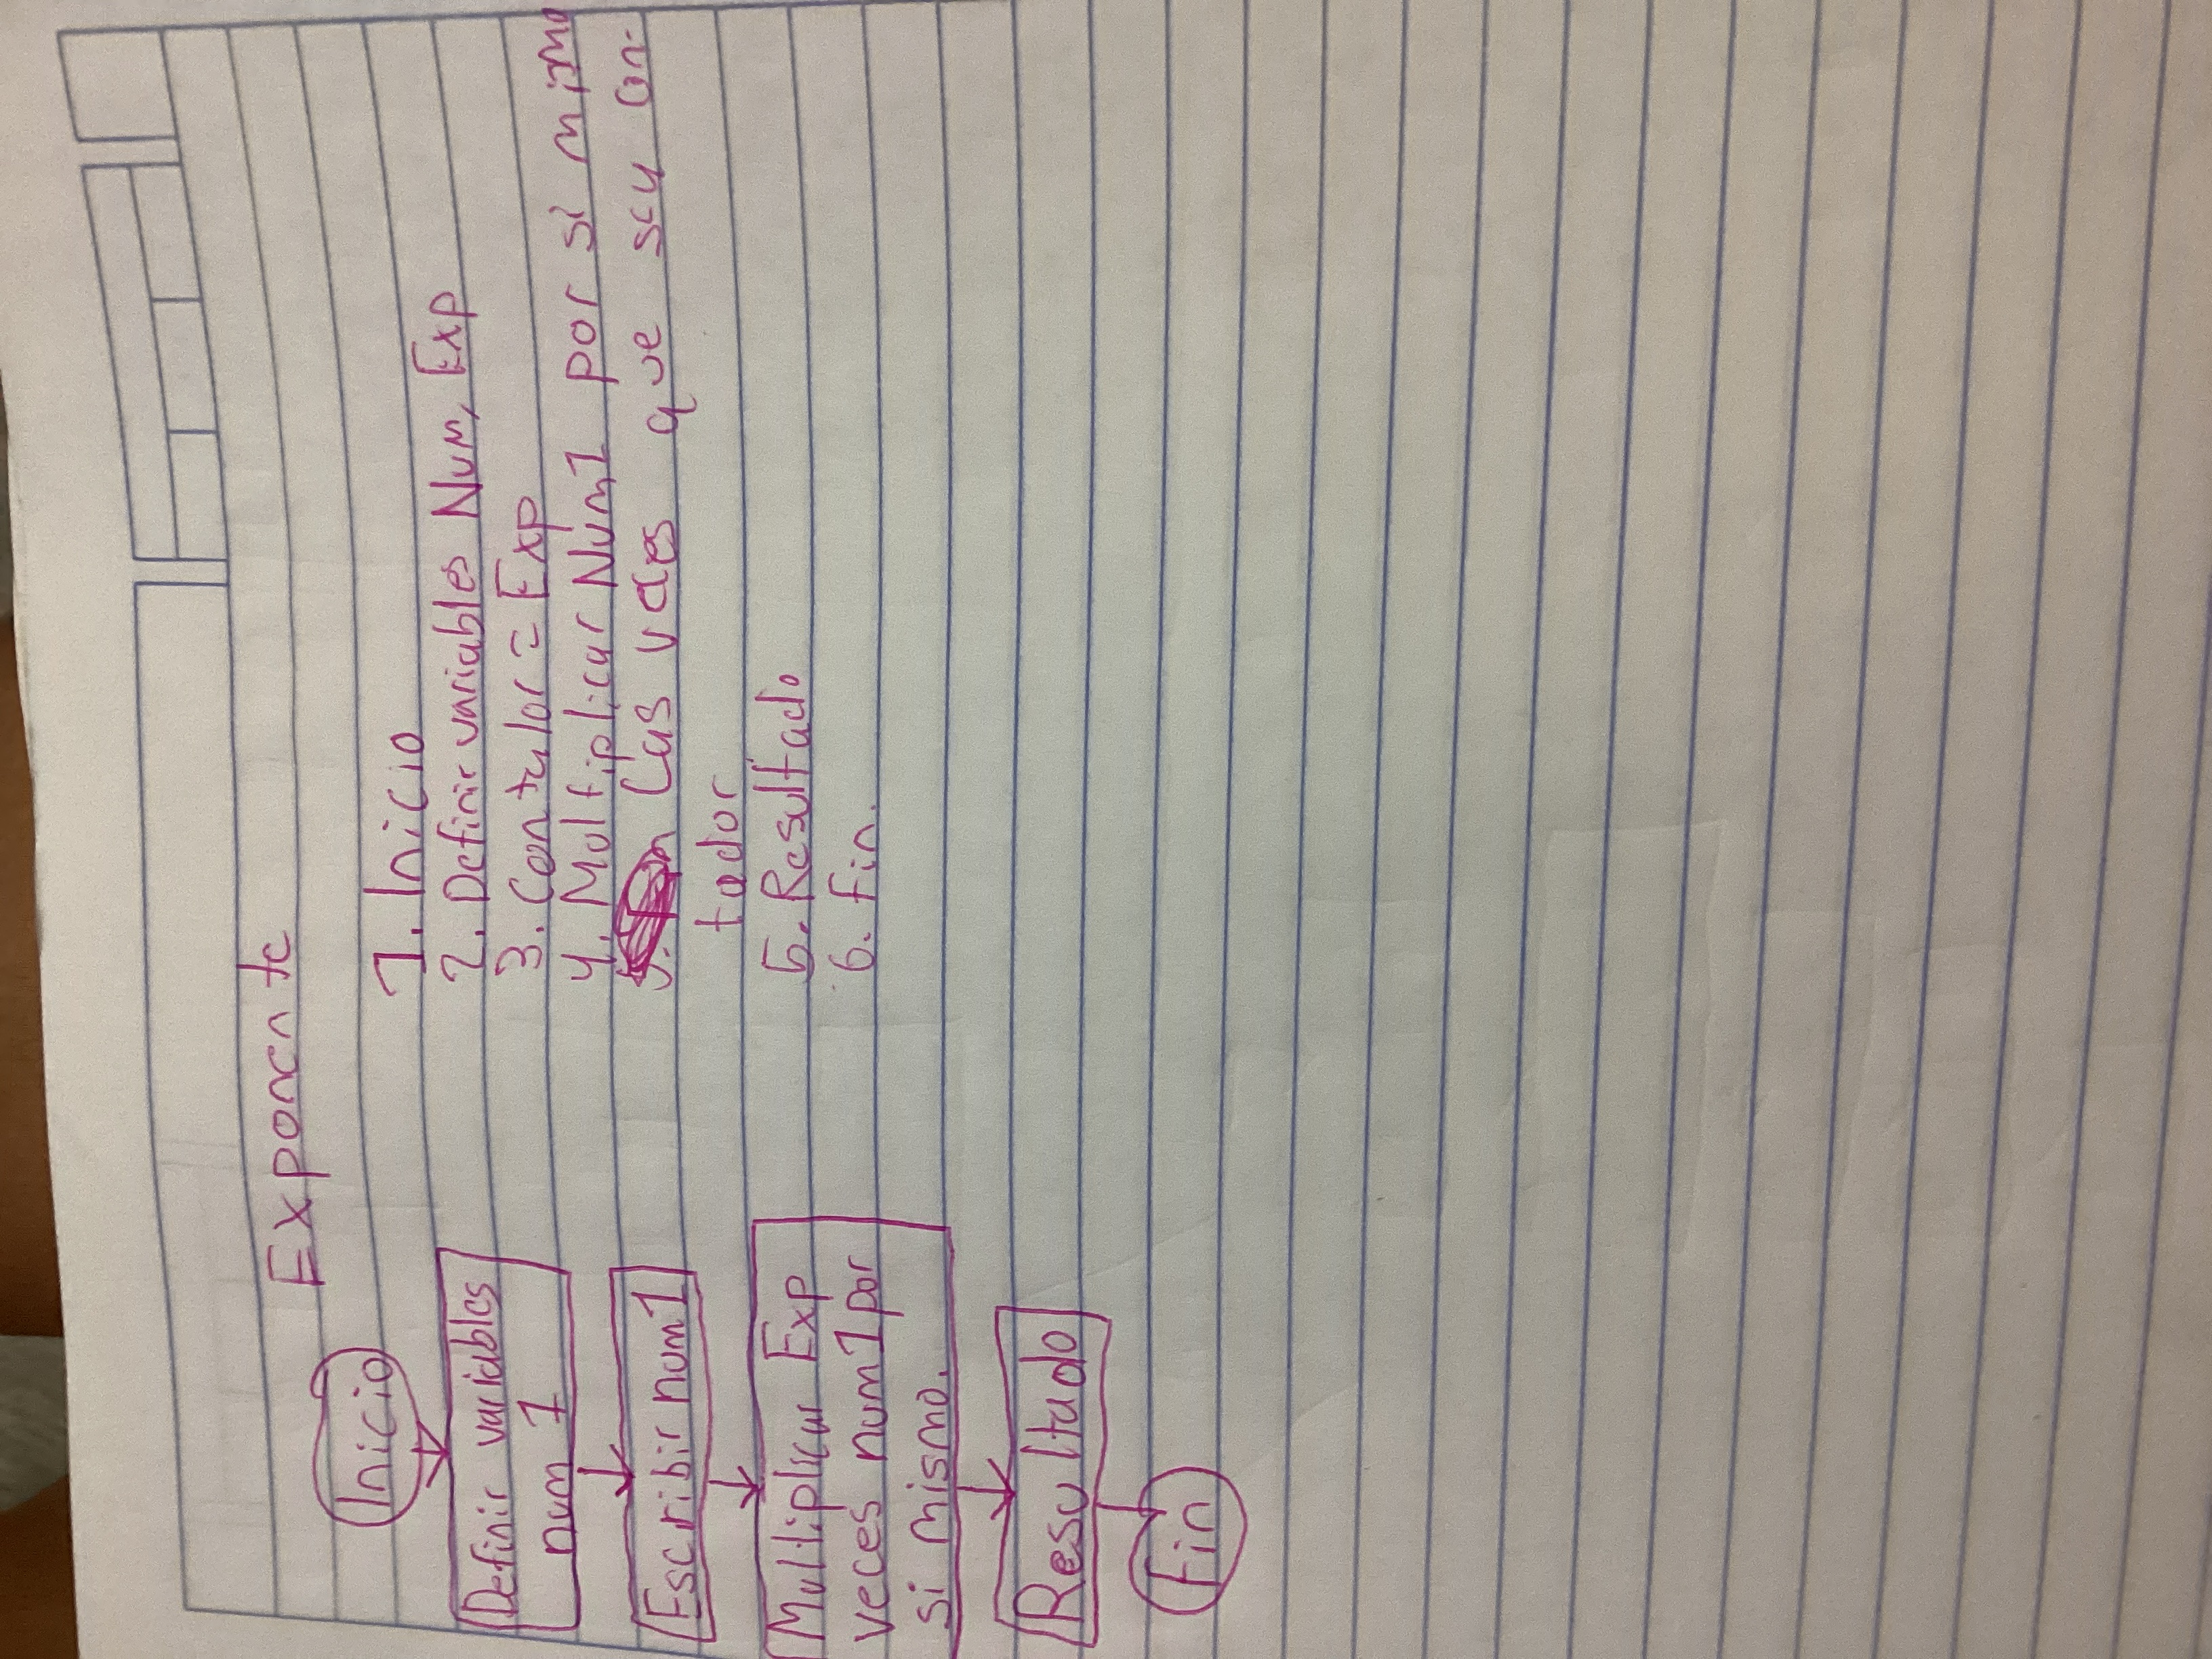 Exponente
Inicio
Definir variables
num 1
Escribir num1
Multiplicar Exp
veces num1 por
si mismo.
Resultado
Fin
1. Inicio
2. Definir variables Num, Exp
3. Contador = Exp
4. Multiplicar Num1 por si mismo
Las veces que sea con-
tador
5. Resultado
6. Fin.